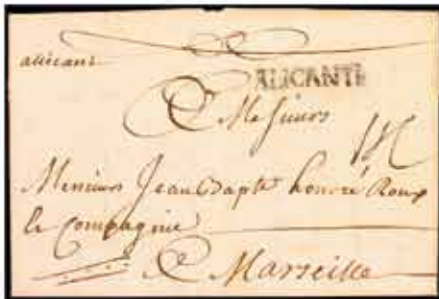 alicant
ALICANTE
A Messieurs
Messieurs Jean Bapte honoré Roux
& Compagnie
A Marseille